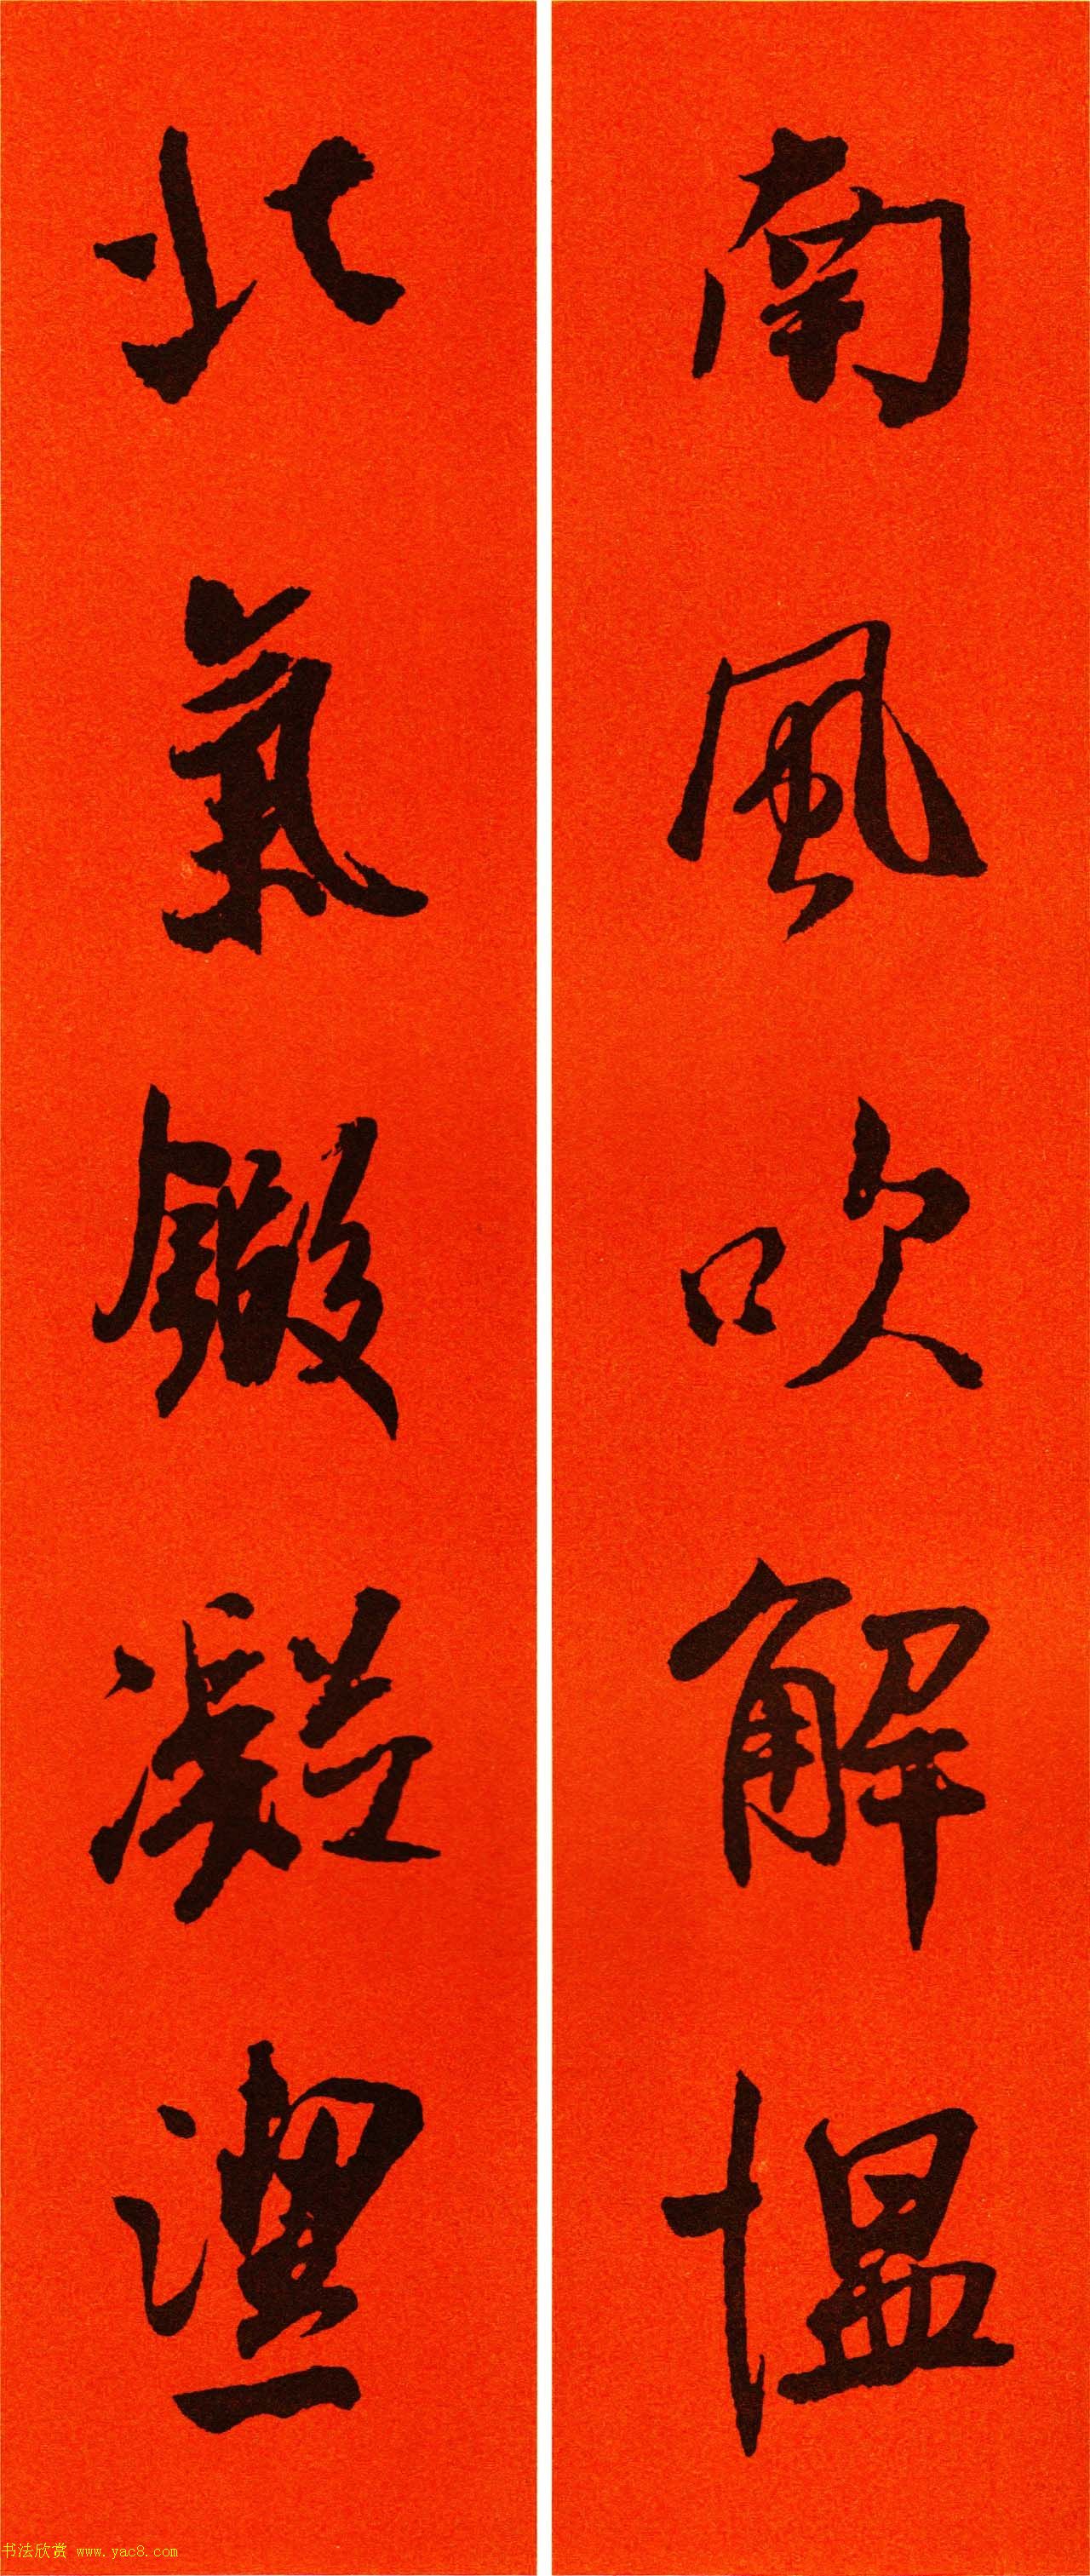 南風吹解慍
北氣鍛凝
书法欣赏 www.yac8.com